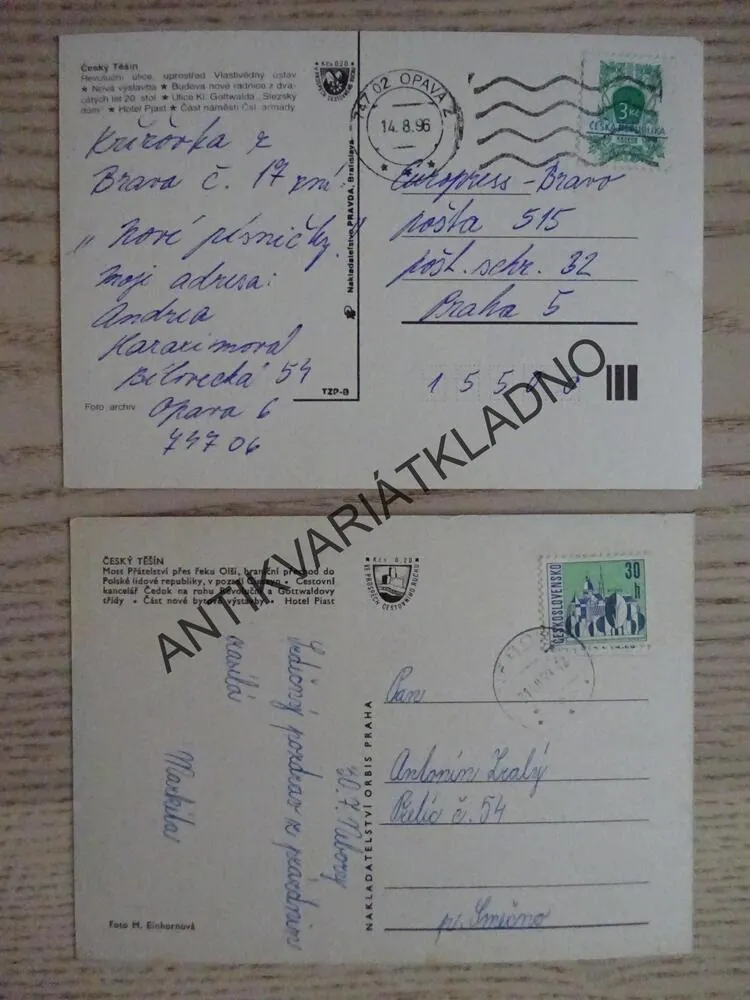 Český Těšín
Revoluční ulice, uprostřed Vlastivědný ústav
★ Nová výstavba ★ Budova nové radnice z dva-
cátých let 20. stol. ★ Ulice Kl. Gottwalda „Slezský
dom" ★ Hotel Piast ★ Část náměstí Čsl. armády
Kčs 0,20
747 02 OPAVA 2
14.8.96
3 Kč
ČESKÁ REPUBLIKA
Křížovka z
Brava č. 17 zní
„Nové písničky."
moji adresa:
Andrea
Bílovecká 54
Opava 6
747 06
Foto archiv
Nakladatelství PRAVDA, Bratislava
TZP-B
Europress - Bravo
pošta 515
pošt. schr. 32
Praha 5
155
ANTIKVARIÁTKLADNO
ČESKÝ TĚŠÍN
Most Přátelství přes řeku Olši, hraniční přechod do
Polské lidové republiky, v pozadí • Cestovní
kancelář Čedok na rohu Revoluční a Gottwaldovy
třídy • Část nové bytové výstavby • Hotel Piast
Kčs 0,20
VE PROSPĚCH CESTOVNÍHO RUCHU
ČESKOSLOVENSKO
30 h
30.7.
Srdečný pozdrav z prázdnin
Foto H. Einhornová
NAKLADATELSTVÍ ORBIS PRAHA
Pan
Antonín Zralý
č. 54
p. Smečno